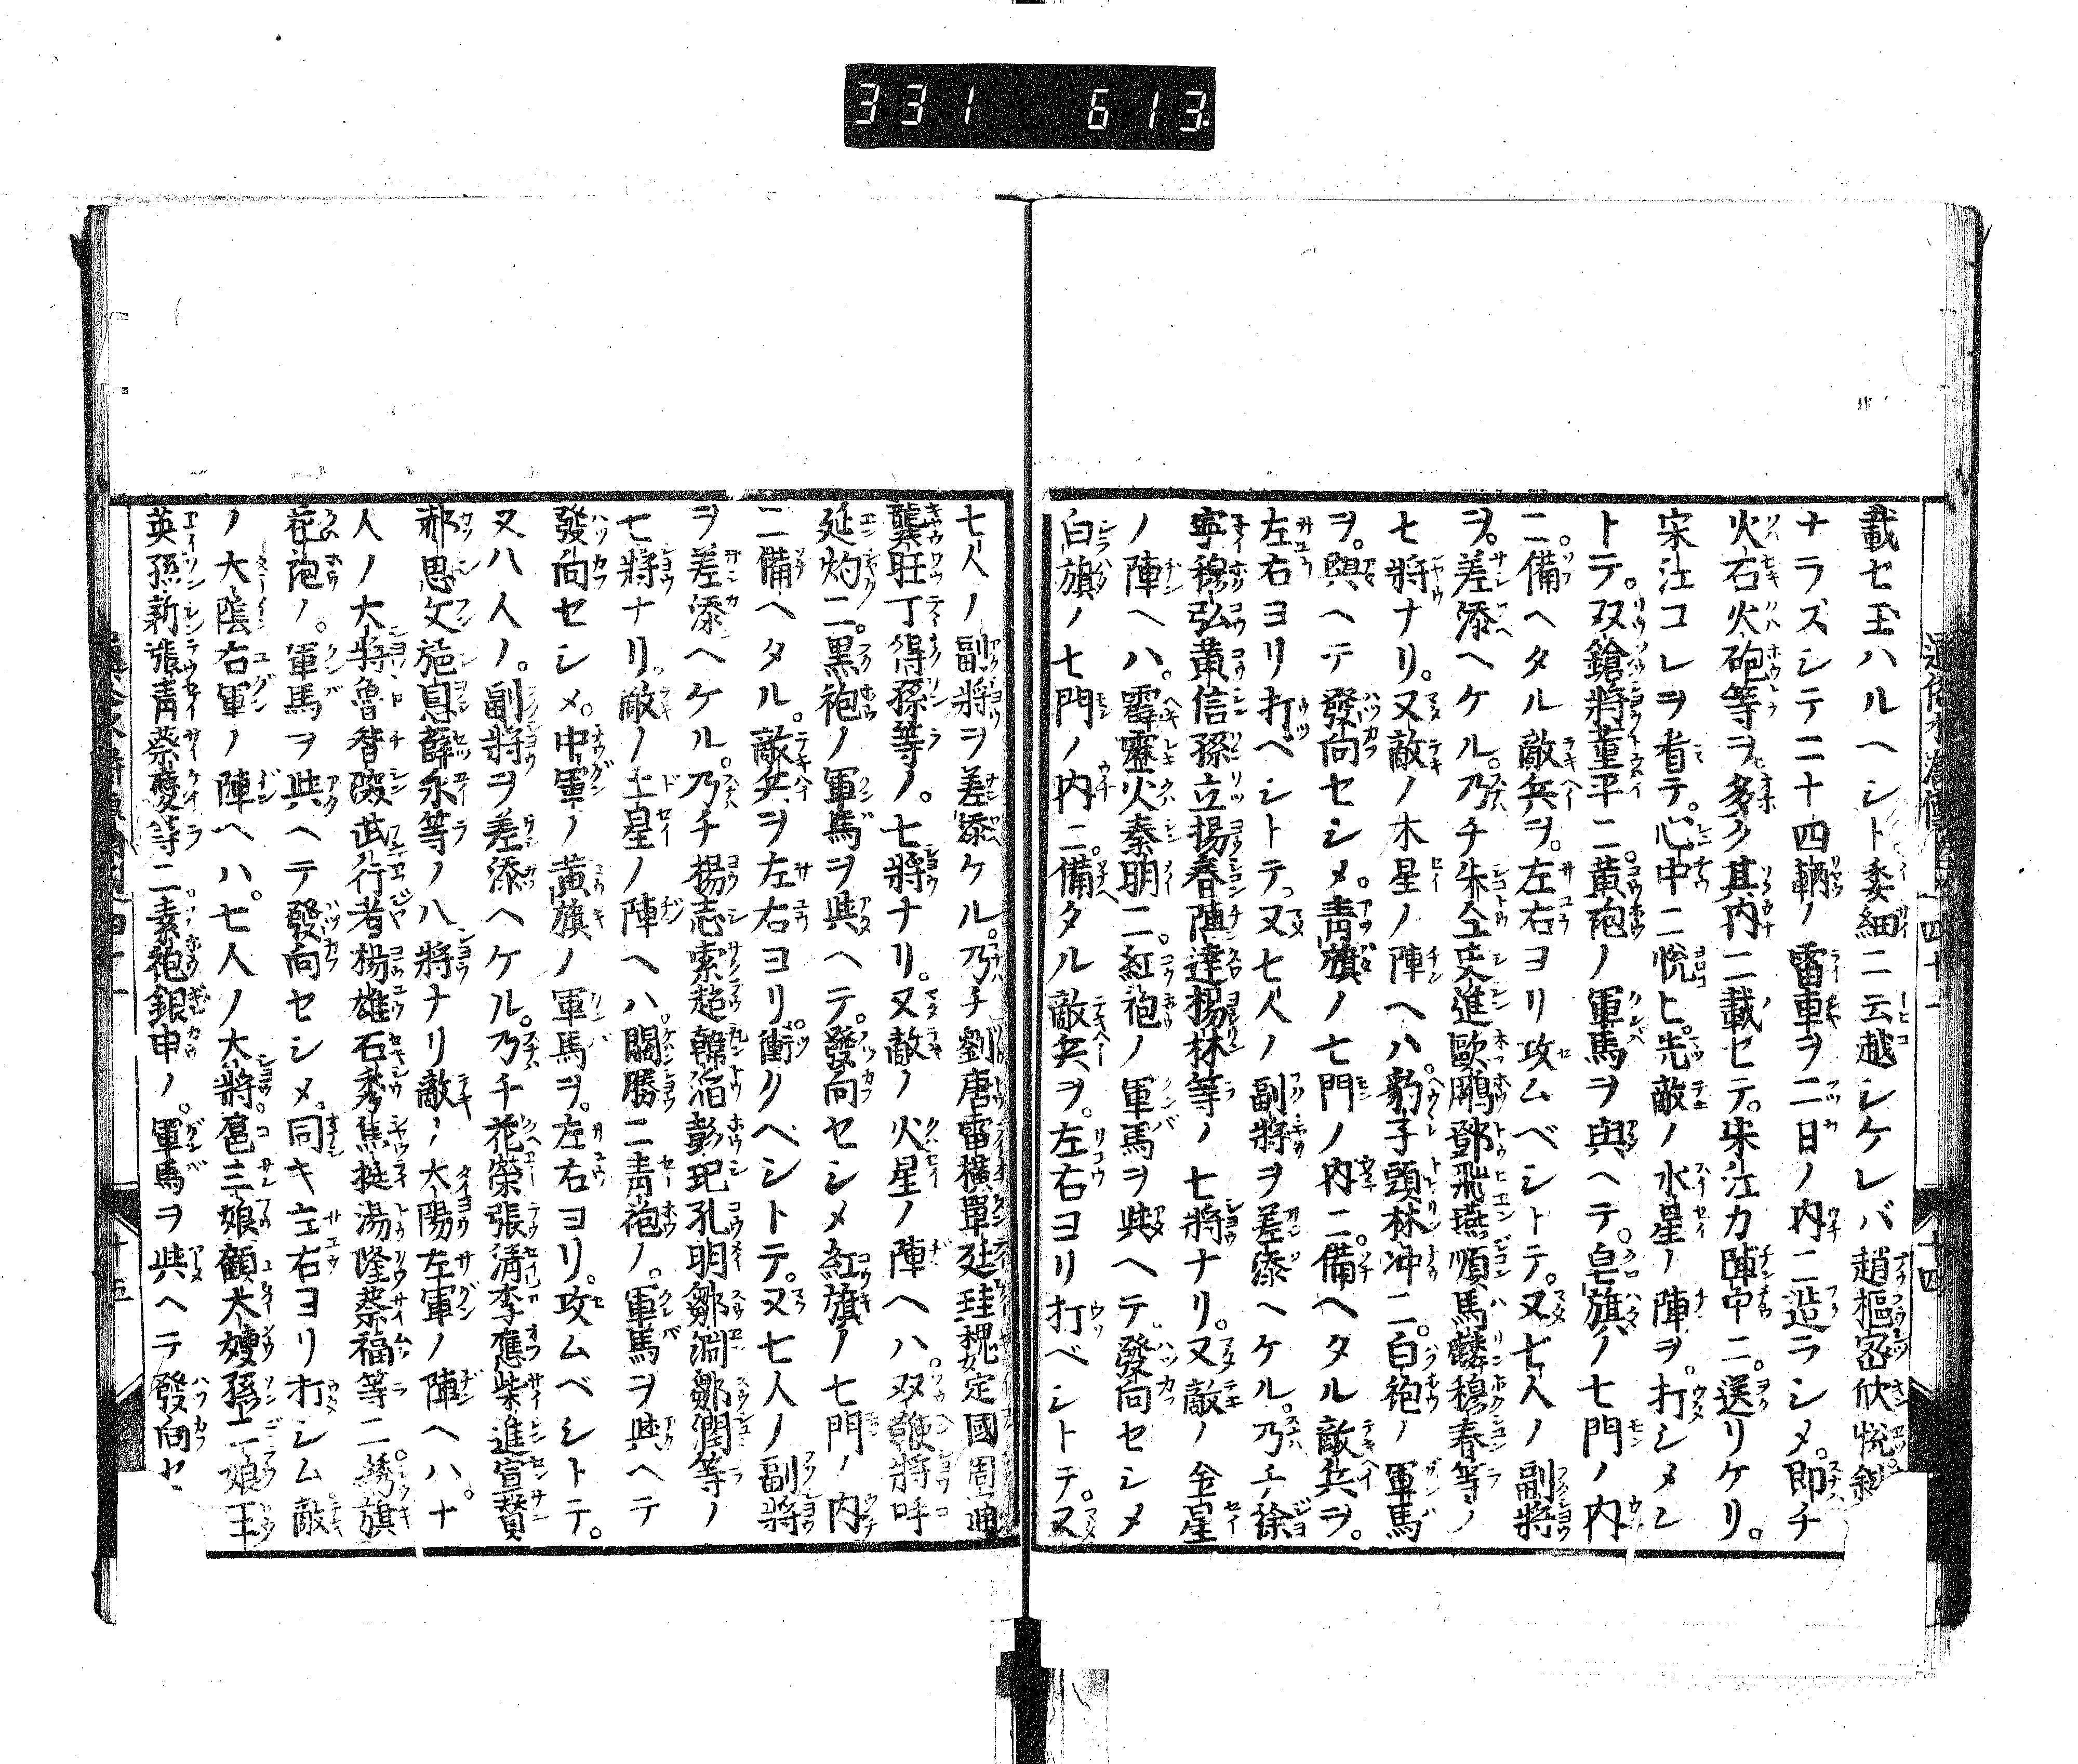 331 613
載セ玉ハルヘシト委細ニ云越シケレバ趙樞密欣悦斜
ナラズシテ二十四輌ノ雷車ヲ二日ノ内ニ造ラシメ。即チ
火石火砲等ヲ多ク其内ニ載セテ。宋江カ陣中ニ。送リケリ。
宋江コレヲ看テ。心中ニ悦ヒ。先敵ノ水星ノ陣ヲ。打シメン
トテ。双鎗將董平ニ。黄袍ノ軍馬ヲ與ヘテ。皂旗ノ七門ノ内
ニ。備ヘタル敵兵ヲ。左右ヨリ攻ムベシトテ。又七人ノ副將
ヲ。差添ヘケル。乃チ朱仝史進歐鵬鄧飛燕順馬麟穆春等ノ
七將ナリ。又敵ノ木星ノ陣ヘハ。豹子頭林冲ニ。白袍ノ軍馬
ヲ。與ヘテ發向セシメ。青旗ノ七門ノ内ニ。備ヘタル敵兵ヲ。
左右ヨリ打ヘシトテ。又七人ノ副將ヲ差添ヘケル。乃チ徐
寧穆弘黄信孫立楊春陳達楊林等ノ七將ナリ。又敵ノ金星
ノ陣ヘハ。霹靂火秦明ニ。紅袍ノ軍馬ヲ與ヘテ。發向セシメ
白旗ノ七門ノ内ニ。備タル敵兵ヲ。左右ヨリ打ベシトテ。又
十四
七人ノ副將ヲ差添ケル。乃チ劉唐雷橫單廷珪魏定國周通
龔旺丁得孫等ノ。七將ナリ。又敵ノ火星ノ陣ヘハ。双鞭將呼
延灼ニ。黒袍ノ軍馬ヲ與ヘテ。發向セシメ紅旗ノ七門ノ内
ニ備ヘタル。敵兵ヲ左右ヨリ。衝クヘシトテ。又七人ノ副將
ヲ差添ヘケル。乃チ楊志索超韓滔彭玘孔明鄒淵鄒潤等ノ
七將ナリ。敵ノ土星ノ陣ヘハ。關勝ニ青袍ノ。軍馬ヲ與ヘテ
發向セシメ。中軍ノ黄旗ノ軍馬ヲ。左右ヨリ。攻ムベシトテ。
又八人ノ。副將ヲ差添ヘケル。乃チ花榮張清李應柴進宣贊
郝思文施恩薛永等ノ八將ナリ敵ノ太陽左軍ノ陣ヘハ。ナ
人ノ大將魯智深武行者楊雄石秀焦挺湯隆蔡福等ニ。綉旗
花袍ノ。軍馬ヲ與ヘテ發向セシメ。同キ左右ヨリ打シム敵
ノ大陰右軍ノ陣ヘハ。七人ノ大將。扈三娘顧大嫂孫二娘王
英孫新張青蔡慶等ニ素袍銀甲ノ。軍馬ヲ與ヘテ發向セ